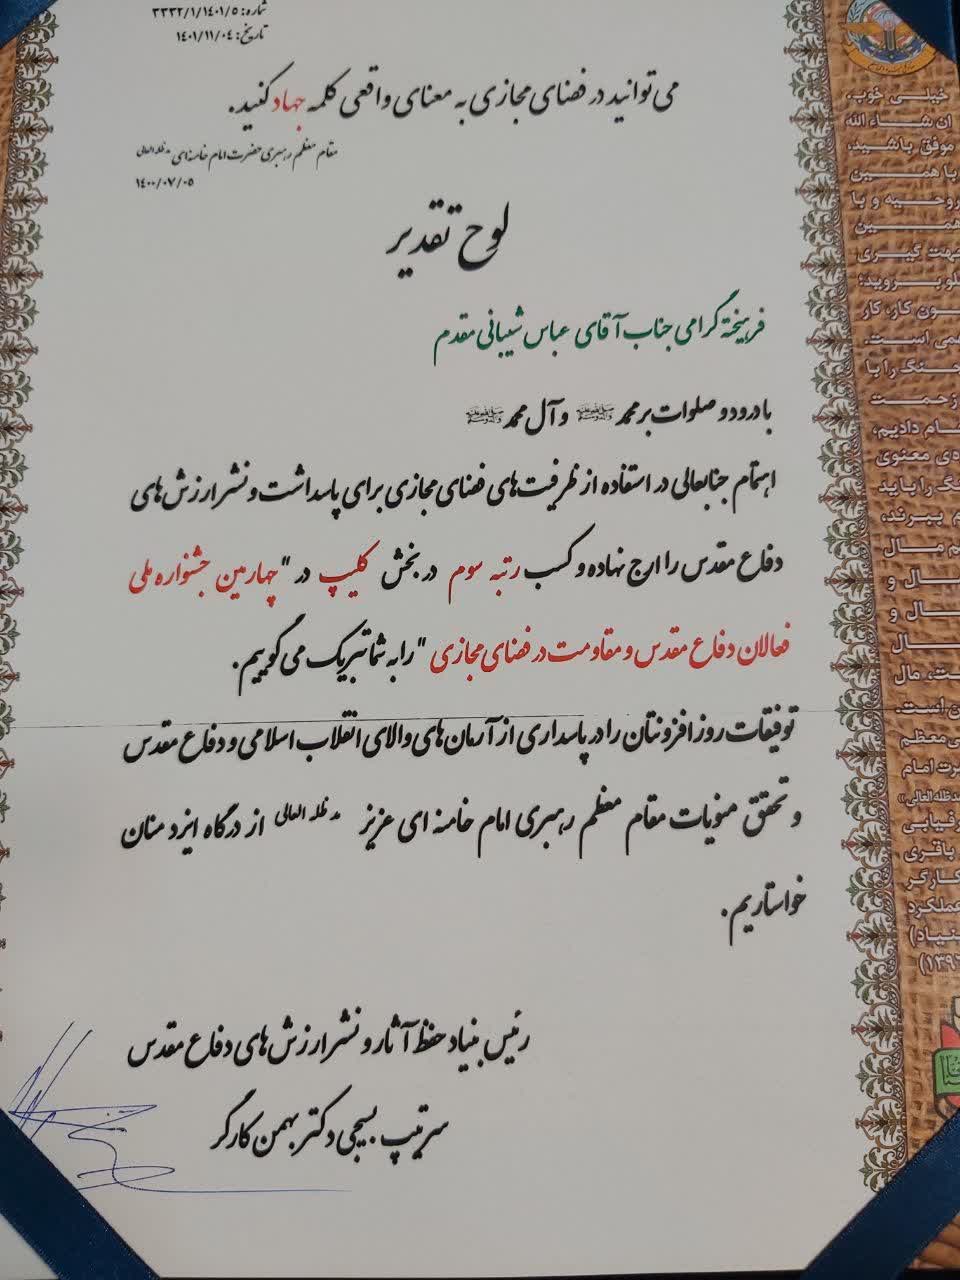 شماره: ۳۳۳۲/۱/۱۴۰۱/۵
تاریخ: ۱۴۰۱/۱۱/۰۴
می‌توانید در فضای مجازی به معنای واقعی کلمه جهاد کنید.
مقام معظم رهبری حضرت امام خامنه‌ای مدظله العالی
۱۴۰۰/۰۷/۰۵
لوح تقدیر
فرهیخته گرامی جناب آقای عباس شیبانی مقدم
با درود و صلوات بر محمد ﷺ و آل محمد ﷺ
اهتمام جنابعالی در استفاده از ظرفیت‌های فضای مجازی برای پاسداشت و نشر ارزش‌های
دفاع مقدس را ارج نهاده و کسب رتبه سوم در بخش کلیپ در "چهارمین جشنواره ملی
فعالان دفاع مقدس و مقاومت در فضای مجازی" را به شما تبریک می‌گوییم.
توفیقات روزافزونتان را در پاسداری از آرمان‌های والای انقلاب اسلامی و دفاع مقدس
و تحقق منویات مقام معظم رهبری امام خامنه ای عزیز مدظله العالی از درگاه ایزد منان
خواستاریم.
رئیس بنیاد حفظ آثار و نشر ارزش‌های دفاع مقدس
سرتیپ بسیجی دکتر بهمن کارگر
خیلی خوب،
ان شاء الله
موفق باشید،
با همین
روحیه و با
همین
جهت گیری
بروید؛
کار، کار
است.
جنگ را با
زحمت
دادیم،
معنوی
را باید
ببرند،
مال
مال
معظم
امام
مدظله العالی»
باقری
کارگر
عملکرد